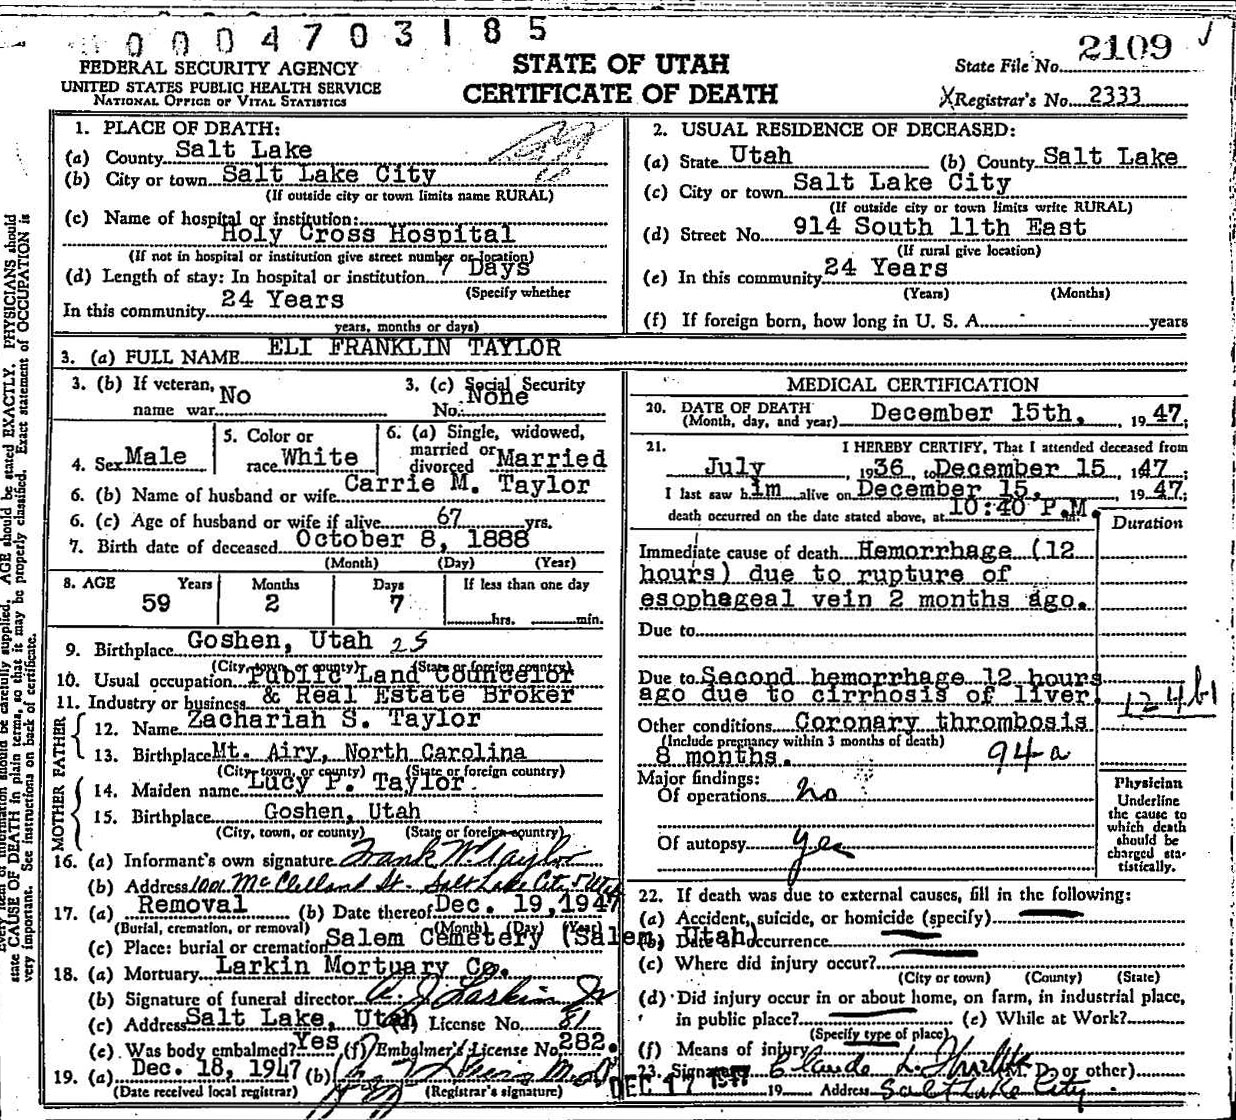 0004703185
FEDERAL SECURITY AGENCY
UNITED STATES PUBLIC HEALTH SERVICE
NATIONAL OFFICE OF VITAL STATISTICS
STATE OF UTAH
CERTIFICATE OF DEATH
State File No. 2109
X Registrar's No. 2333
1. PLACE OF DEATH:
(a) County Salt Lake
(b) City or town Salt Lake City
(If outside city or town limits name RURAL)
(c) Name of hospital or institution:
Holy Cross Hospital
(If not in hospital or institution give street number or location)
(d) Length of stay: In hospital or institution 7 Days
(Specify whether
In this community 24 Years
years, months or days)
2. USUAL RESIDENCE OF DECEASED:
(a) State Utah (b) County Salt Lake
(c) City or town Salt Lake City
(If outside city or town limits write RURAL)
(d) Street No. 914 South 11th East
(If rural give location)
(e) In this community 24 Years
(Years) (Months)
(f) If foreign born, how long in U. S. A. - years
3. (a) FULL NAME ELI FRANKLIN TAYLOR
3. (b) If veteran, name war No
3. (c) Social Security No. None
4. Sex Male
5. Color or race White
6. (a) Single, widowed, married or divorced Married
6. (b) Name of husband or wife Carrie M. Taylor
6. (c) Age of husband or wife if alive 67 yrs.
7. Birth date of deceased October 8, 1888
(Month) (Day) (Year)
8. AGE Years Months Days If less than one day
59 2 7 hrs. min.
9. Birthplace Goshen, Utah 25
(City, town, or county) (State or foreign country)
10. Usual occupation Public Land Councelor
11. Industry or business & Real Estate Broker
FATHER
12. Name Zachariah S. Taylor
13. Birthplace Mt. Airy, North Carolina
(City, town, or county) (State or foreign country)
MOTHER
14. Maiden name Lucy P. Taylor
15. Birthplace Goshen, Utah
(City, town, or county) (State or foreign country)
16. (a) Informant's own signature Frank W. Taylor
(b) Address 1001 McClelland St. Salt Lake City, Utah
17. (a) Removal (b) Date thereof Dec. 19, 1947
(Burial, cremation, or removal) (Month) (Day) (Year)
(c) Place: burial or cremation Salem Cemetery (Salem, Utah)
18. (a) Mortuary Larkin Mortuary Co.
(b) Signature of funeral director Larkin Jr
(c) Address Salt Lake, Utah (d) License No. 81
(e) Was body embalmed? Yes (f) Embalmer's License No. 282.
19. (a) Dec. 18, 1947 (b) M.D.
(Date received local registrar) (Registrar's signature)
MEDICAL CERTIFICATION
20. DATE OF DEATH
(Month, day, and year) December 15th, 1947;
21. I HEREBY CERTIFY, That I attended deceased from
July, 1936, to December 15, 1947;
I last saw him alive on December 15, 1947;
death occurred on the date stated above, at 10:40 P.M.
Duration
Immediate cause of death Hemorrhage (12
hours) due to rupture of
esophageal vein 2 months ago.
Due to
Due to Second hemorrhage 12 hours
ago due to cirrhosis of liver.
124b1
Other conditions Coronary thrombosis
(Include pregnancy within 3 months of death)
8 months. 94a
Major findings:
Of operations no
Of autopsy yes
Physician
Underline
the cause to
which death
should be
charged sta-
tistically.
22. If death was due to external causes, fill in the following:
(a) Accident, suicide, or homicide (specify)
(b) Date of occurrence
(c) Where did injury occur?
(City or town) (County) (State)
(d) Did injury occur in or about home, on farm, in industrial place,
in public place? (e) While at Work?
(Specify type of place)
(f) Means of injury
23. Signature Claude L. (M. D. or other)
DEC 17 1947 19 Address Salt Lake City
AGE should be stated EXACTLY. PHYSICIANS should
state CAUSE OF DEATH in plain terms, so that it may be properly classified. Exact statement of OCCUPATION is
very important. See instructions on back of certificate.